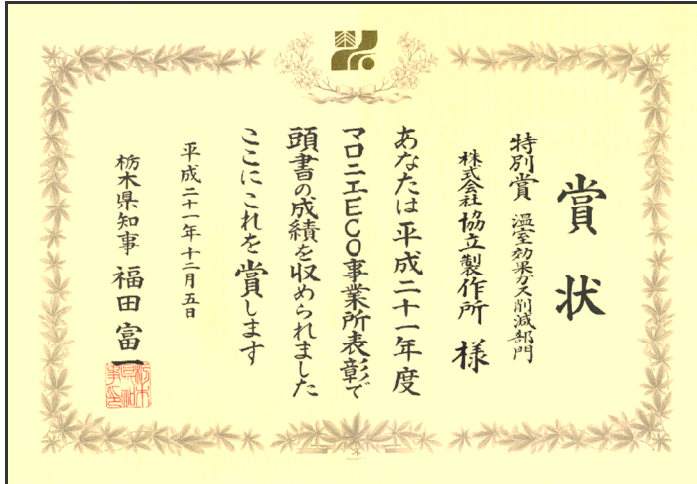 賞状
特別賞 温室効果ガス削減部門
株式会社 協立製作所 様
あなたは平成二十一年度
マロニエECO事業所表彰で
頭書の成績を収められました
ここにこれを賞します
平成二十一年十二月五日
栃木県知事 福田富一